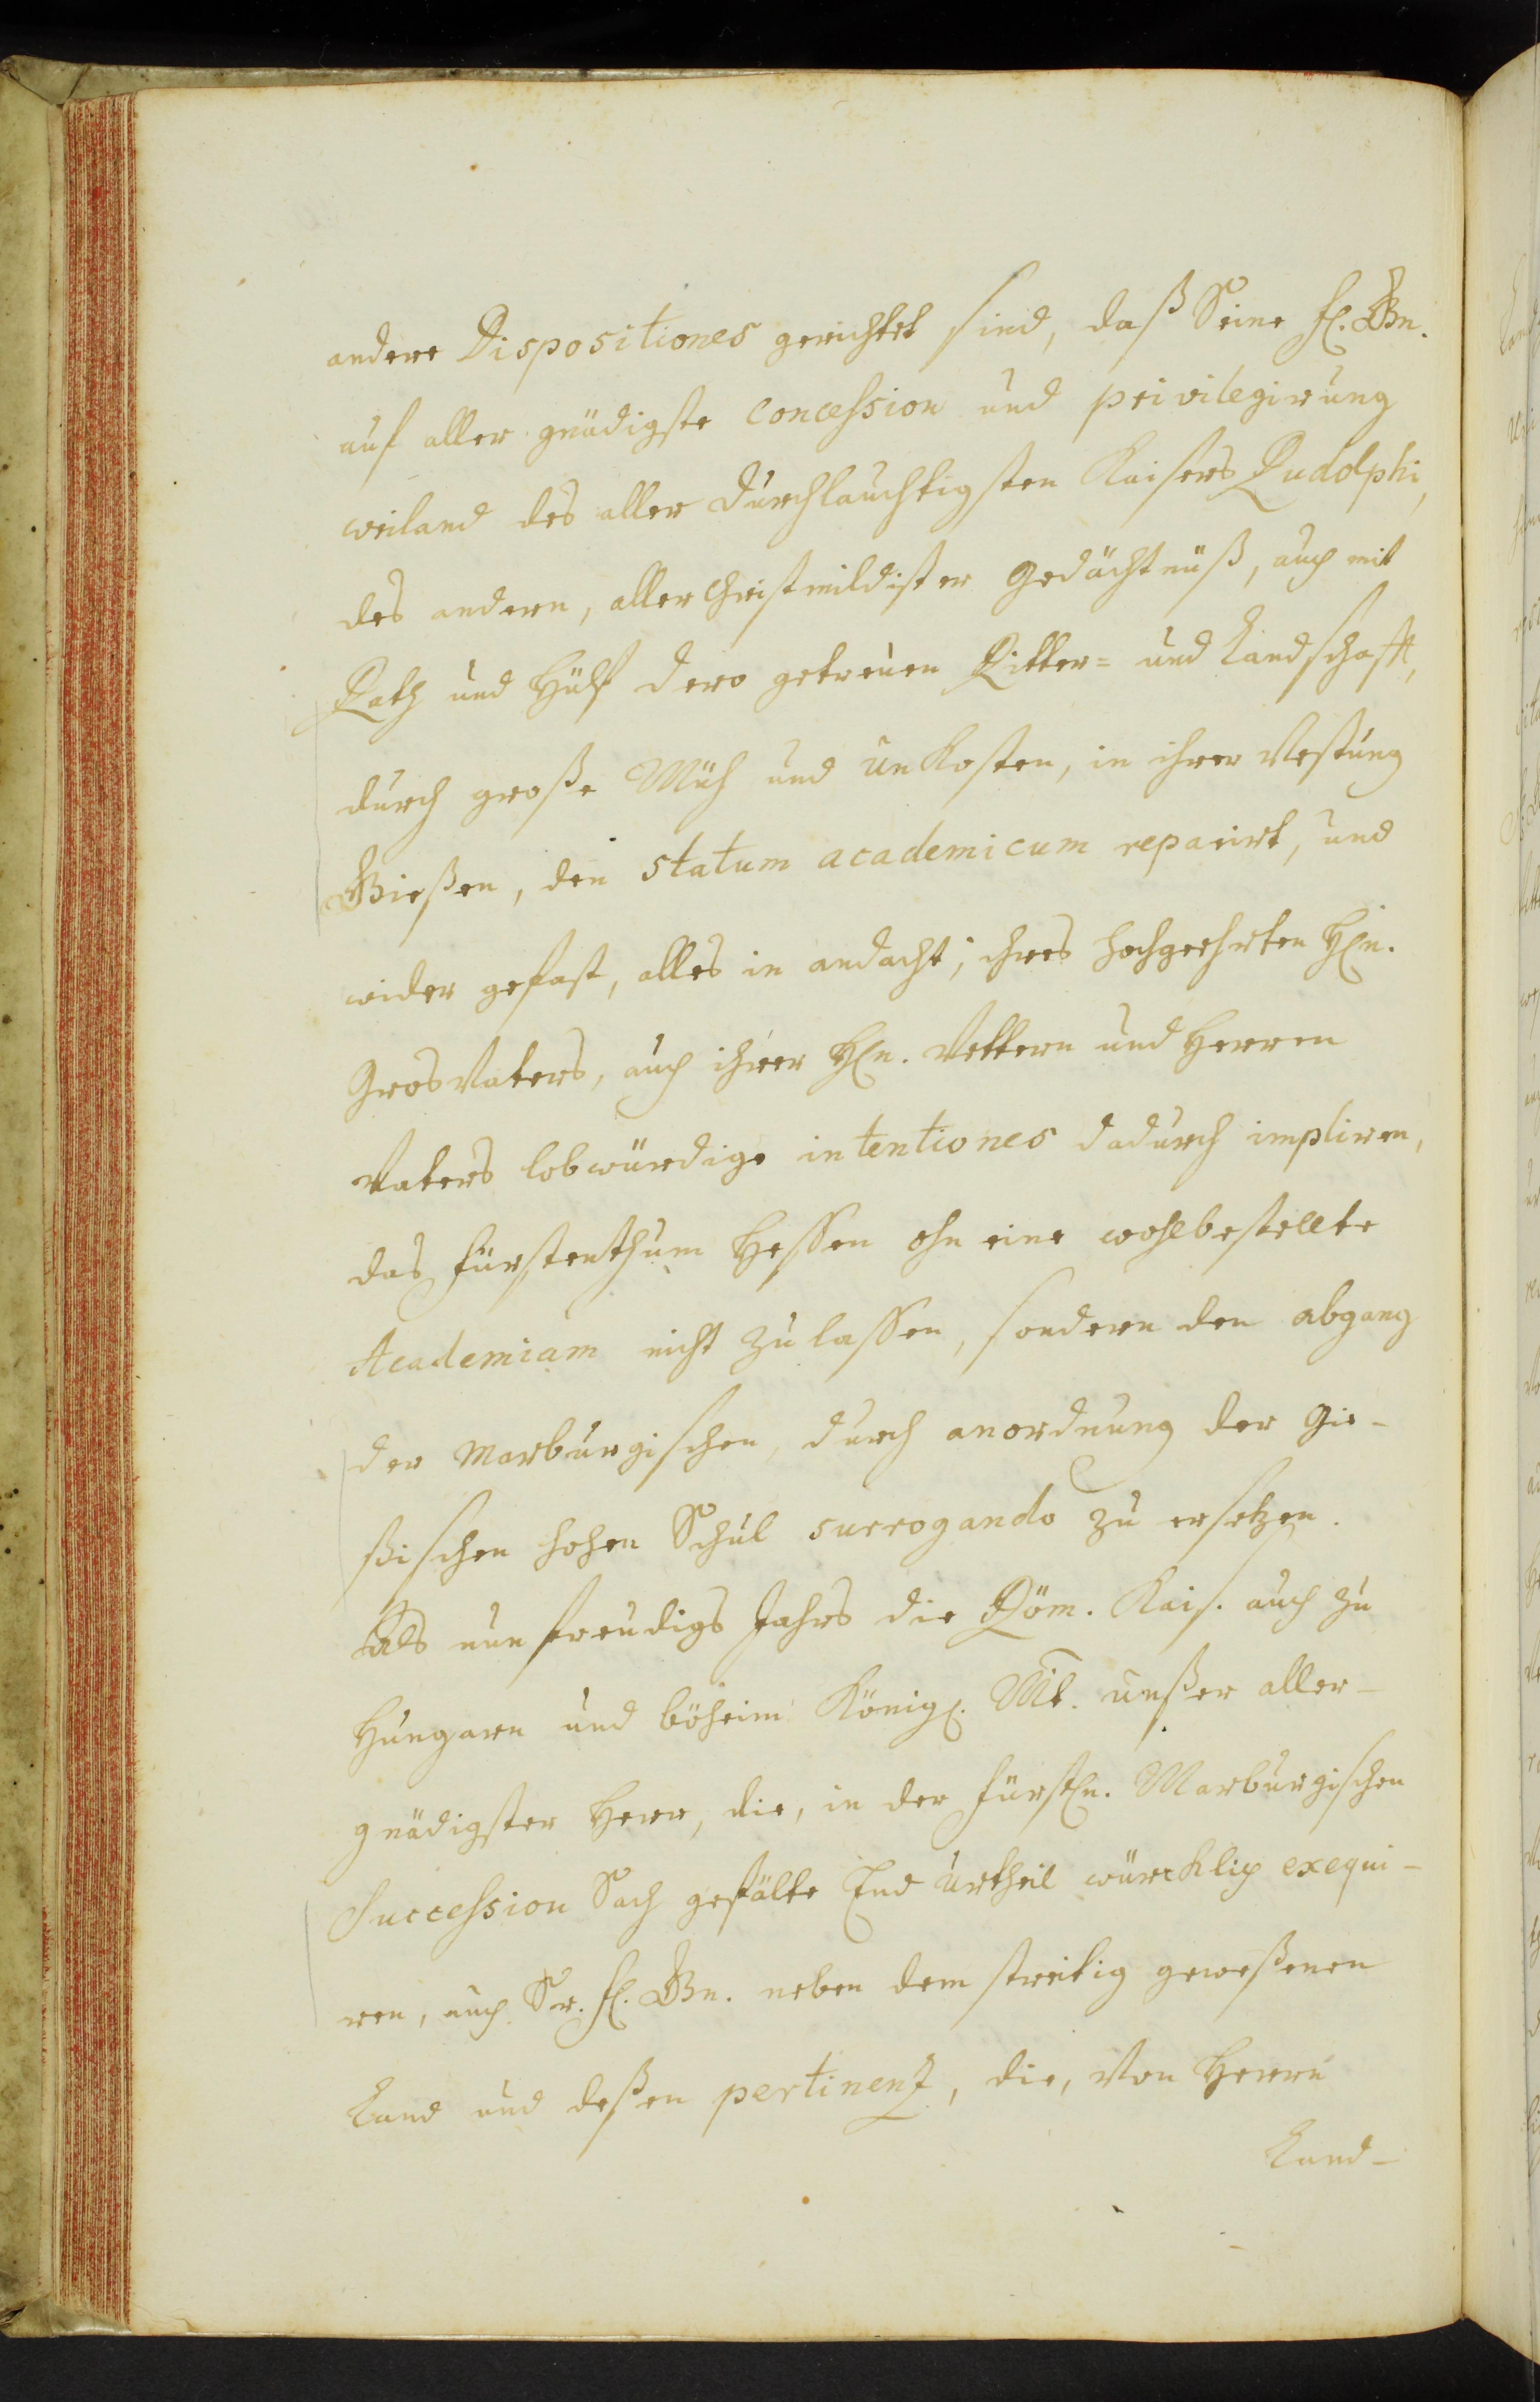 andere Dispositiones gerichtet sind, daß Seine fl. Gn.
auf aller gnädigste Concession und privilegirung
weiland des aller durchlauchtigsten Kaisers Rudolphi,
des andern, aller Christmildister Gedächtnüß, auch mit
Rath und Hülf dero getreuen Ritter= und Landschafft,
durch große Müh und unkosten, in ihrer Vestung
Gießen, den statum academicum reparirt, und
wider gefast, alles in andacht, ihres hochgeehrten Hln.
GrosVaters, auch ihrer Hln. Vettern und Herren
Vaters lobwürdige intentiones dadurch impliren,
das fürstenthum Hessen ohn eine wohlbestellte
Academiam nicht zu lassen, sondern den abgang
der Marburgischen, durch anordnung der Gie-
ßischen hohen Schul surrogando zu ersetzen.
Als nun freudigs Jahrs die Röm. Kais. auch zu
Hungarn und böheim Königl. Mt. unßer aller-
gnädigster Herr, die, in der fürstln. Marburgischen
Succession Sach gefälte End urtheil würcklich exequi-
ren, auch Sr. fl. Gn. neben dem streitig geweßenen
Land und deßen pertinenz, die, von Herrn
Land-